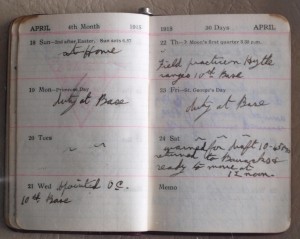 APRIL 4th Month 1915
18 Sun—2nd after Easter.
at Home
19 Mon—Primrose Day
duty at Base
20 Tues
21 Wed Appointed O.C.
10th Base
1915 30 Days APRIL
22 Th—Moon's first quarter
Field practice Hythe
ranges 10th Base
23 Fri—St. George's Day
duty at Base
24 Sat
warned for draft 10-45
returned to Barracks &
ready to move at
12 noon.
Memo